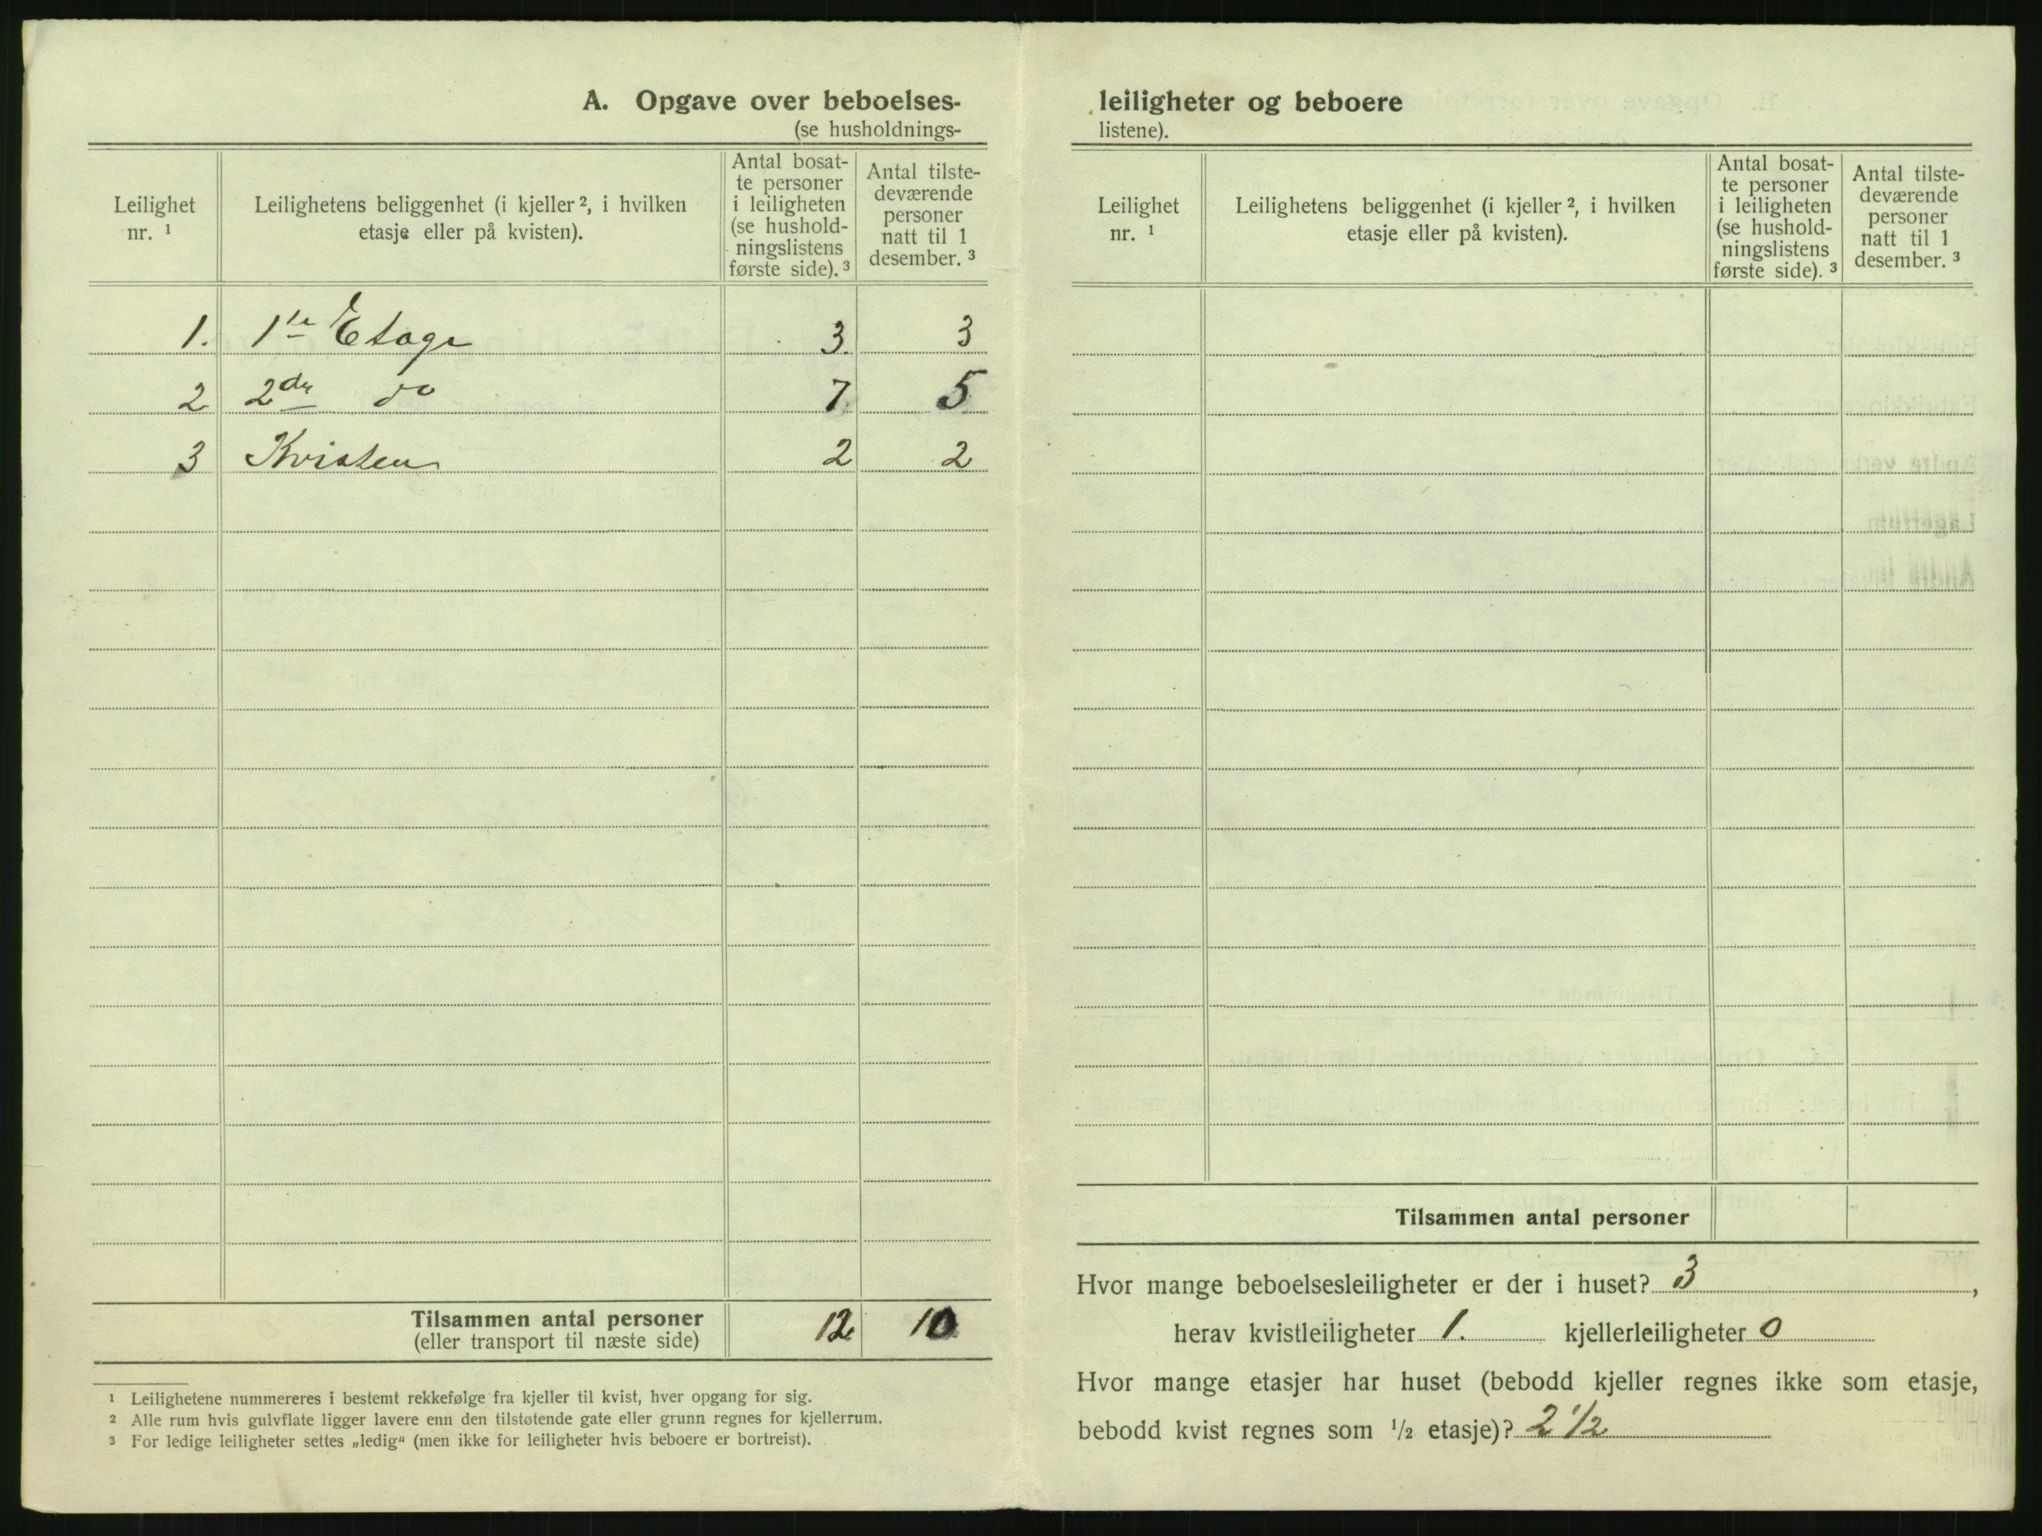 A. Opgave over beboelses-
(se husholdnings-
Leilighet nr. ¹
Leilighetens beliggenhet (i kjeller ², i hvilken etasje eller på kvisten).
Antal bosat-
te personer
i leiligheten
(se hushold-
ningslistens
første side). ³
Antal tilste-
deværende
personer
natt til 1
desember. ³
1. 1ste Etage 3 3
2 2den do 7 5
3 Kvisten 2 2
Tilsammen antal personer 12 10
(eller transport til næste side)
¹ Leilighetene nummereres i bestemt rekkefølge fra kjeller til kvist, hver opgang for sig.
² Alle rum hvis gulvflate ligger lavere enn den tilstøtende gate eller grunn regnes for kjellerrum.
³ For ledige leiligheter settes „ledig“ (men ikke for leiligheter hvis beboere er bortreist).
leiligheter og beboere
listene).
Leilighet nr. ¹
Leilighetens beliggenhet (i kjeller ², i hvilken etasje eller på kvisten).
Antal bosat-
te personer
i leiligheten
(se hushold-
ningslistens
første side). ³
Antal tilste-
deværende
personer
natt til 1
desember. ³
Tilsammen antal personer
Hvor mange beboelsesleiligheter er der i huset? 3,
herav kvistleiligheter 1. kjellerleiligheter 0
Hvor mange etasjer har huset (bebodd kjeller regnes ikke som etasje,
bebodd kvist regnes som ½ etasje)? 2 1/2